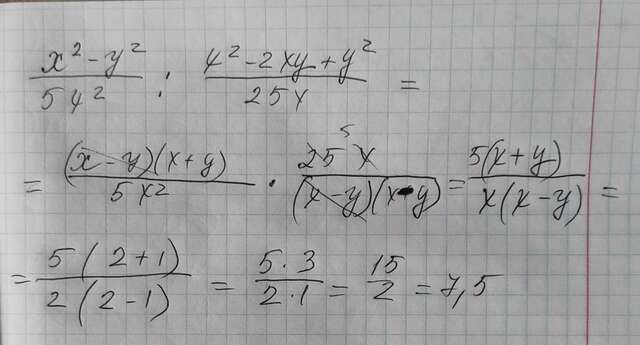 x² - y² / 5x² : x² - 2xy + y² / 25x =
= (x - y)(x + y) / 5x² · 25x / (x - y)(x - y) = 5(x + y) / x(x - y) =
= 5(2+1) / 2(2-1) = 5·3 / 2·1 = 15/2 = 7,5